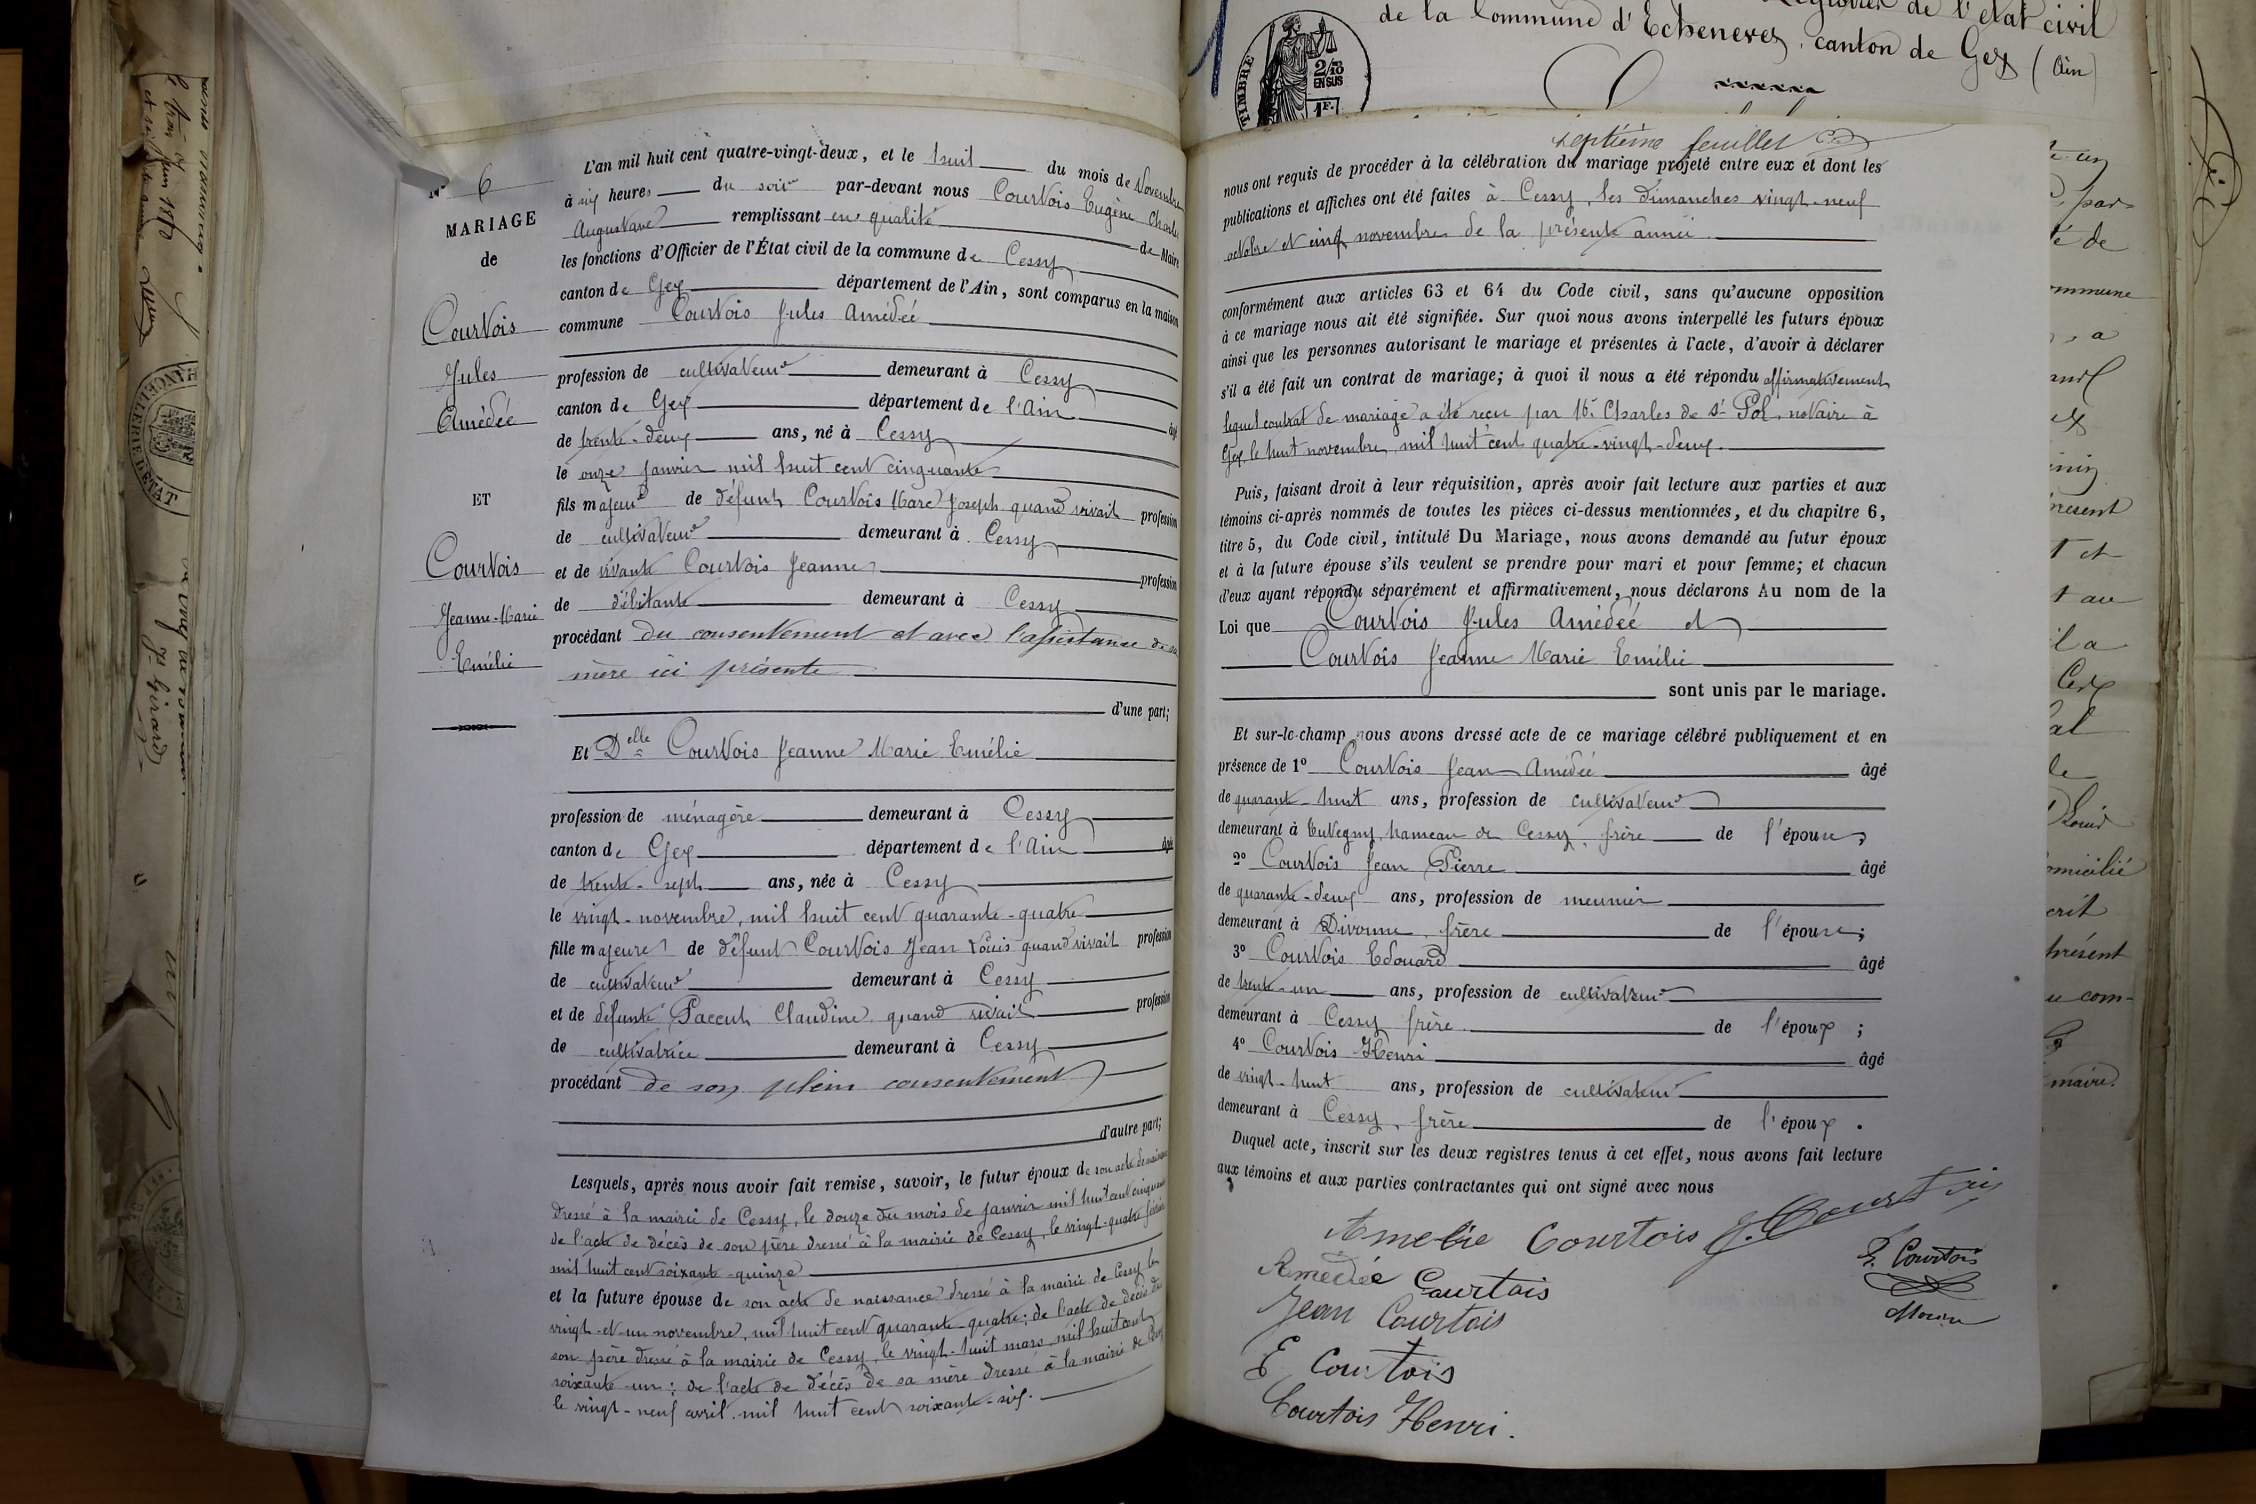 Registres de l'état civil
de la Commune d'Echenevex, canton de Gex (Ain)
TIMBRE
2/10
EN SUS
1 F.
N° 6
MARIAGE
de
Courtois
Jules
Amédée
ET
Courtois
Jeanne-Marie
Emélie
L'an mil huit cent quatre-vingt-deux, et le huit du mois de Novembre
à six heures du soir par-devant nous Courtois Eugène Charles
Augustave remplissant en qualité de Maire
les fonctions d'Officier de l'État civil de la commune de Cessy
canton de Gex département de l'Ain, sont comparus en la maison
commune Courtois Jules Amédée
profession de cultivateur demeurant à Cessy
canton de Gex département de l'Ain âgé
de trente-deux ans, né à Cessy
le onze janvier mil huit cent cinquante
fils majeur de défunt Courtois Marc Joseph quand vivait profession
de cultivateur demeurant à Cessy
et de vivante Courtois Jeanne profession
de débitante demeurant à Cessy
procédant du consentement et avec l'assistance de sa
mère ici présente
d'une part;
Et Delle Courtois Jeanne Marie Emélie
profession de ménagère demeurant à Cessy
canton de Gex département de l'Ain âgée
de trente-sept ans, née à Cessy
le vingt-novembre, mil huit cent quarante-quatre
fille majeure de défunt Courtois Jean Louis quand vivait profession
de cultivateur demeurant à Cessy
et de défunte Paccut Claudine quand vivait profession
de cultivatrice demeurant à Cessy
procédant de son plein consentement
d'autre part;
Lesquels, après nous avoir fait remise, savoir, le futur époux de son acte de naissance
dressé à la mairie de Cessy, le douze du mois de janvier mil huit cent cinquante
de l'acte de décès de son père dressé à la mairie de Cessy, le vingt-quatre février
mil huit cent soixante-quinze
et la future épouse de son acte de naissance dressé à la mairie de Cessy le
vingt-et-un novembre, mil huit cent quarante-quatre; de l'acte de décès de
son père dressé à la mairie de Cessy, le vingt-huit mars, mil huit cent
soixante-un; de l'acte de décès de sa mère dressé à la mairie de Cessy
le vingt-neuf avril mil huit cent soixante-six.
septième feuillet
nous ont requis de procéder à la célébration du mariage projeté entre eux et dont les
publications et affiches ont été faites à Cessy, les dimanches vingt-neuf
octobre et cinq novembre de la présente année
conformément aux articles 63 et 64 du Code civil, sans qu'aucune opposition
à ce mariage nous ait été signifiée. Sur quoi nous avons interpellé les futurs époux
ainsi que les personnes autorisant le mariage et présentes à l'acte, d'avoir à déclarer
s'il a été fait un contrat de mariage; à quoi il nous a été répondu affirmativement
lequel contrat de mariage a été reçu par Me Charles de St Pol, notaire à
Gex, le huit novembre, mil huit cent quatre-vingt-deux.
Puis, faisant droit à leur réquisition, après avoir fait lecture aux parties et aux
témoins ci-après nommés de toutes les pièces ci-dessus mentionnées, et du chapitre 6,
titre 5, du Code civil, intitulé Du Mariage, nous avons demandé au futur époux
et à la future épouse s'ils veulent se prendre pour mari et pour femme; et chacun
d'eux ayant répondu séparément et affirmativement, nous déclarons Au nom de la
Loi que Courtois Jules Amédée et
Courtois Jeanne Marie Emélie
sont unis par le mariage.
Et sur-le-champ nous avons dressé acte de ce mariage célébré publiquement et en
présence de 1° Courtois Jean Amédée âgé
de quarante-huit ans, profession de cultivateur
demeurant à Tutegny, hameau de Cessy, frère de l'épouse;
2° Courtois Jean Pierre âgé
de quarante-deux ans, profession de meunier
demeurant à Divonne, frère de l'épouse;
3° Courtois Edouard âgé
de trente-un ans, profession de cultivateur
demeurant à Cessy frère de l'époux;
4° Courtois Henri âgé
de vingt-huit ans, profession de cultivateur
demeurant à Cessy, frère de l'époux.
Duquel acte, inscrit sur les deux registres tenus à cet effet, nous avons fait lecture
aux témoins et aux parties contractantes qui ont signé avec nous
Amelie Courtois J. Courtois
Amédée Courtois
Jean Courtois
E. Courtois
Maire
E Courtois
Courtois Henri.